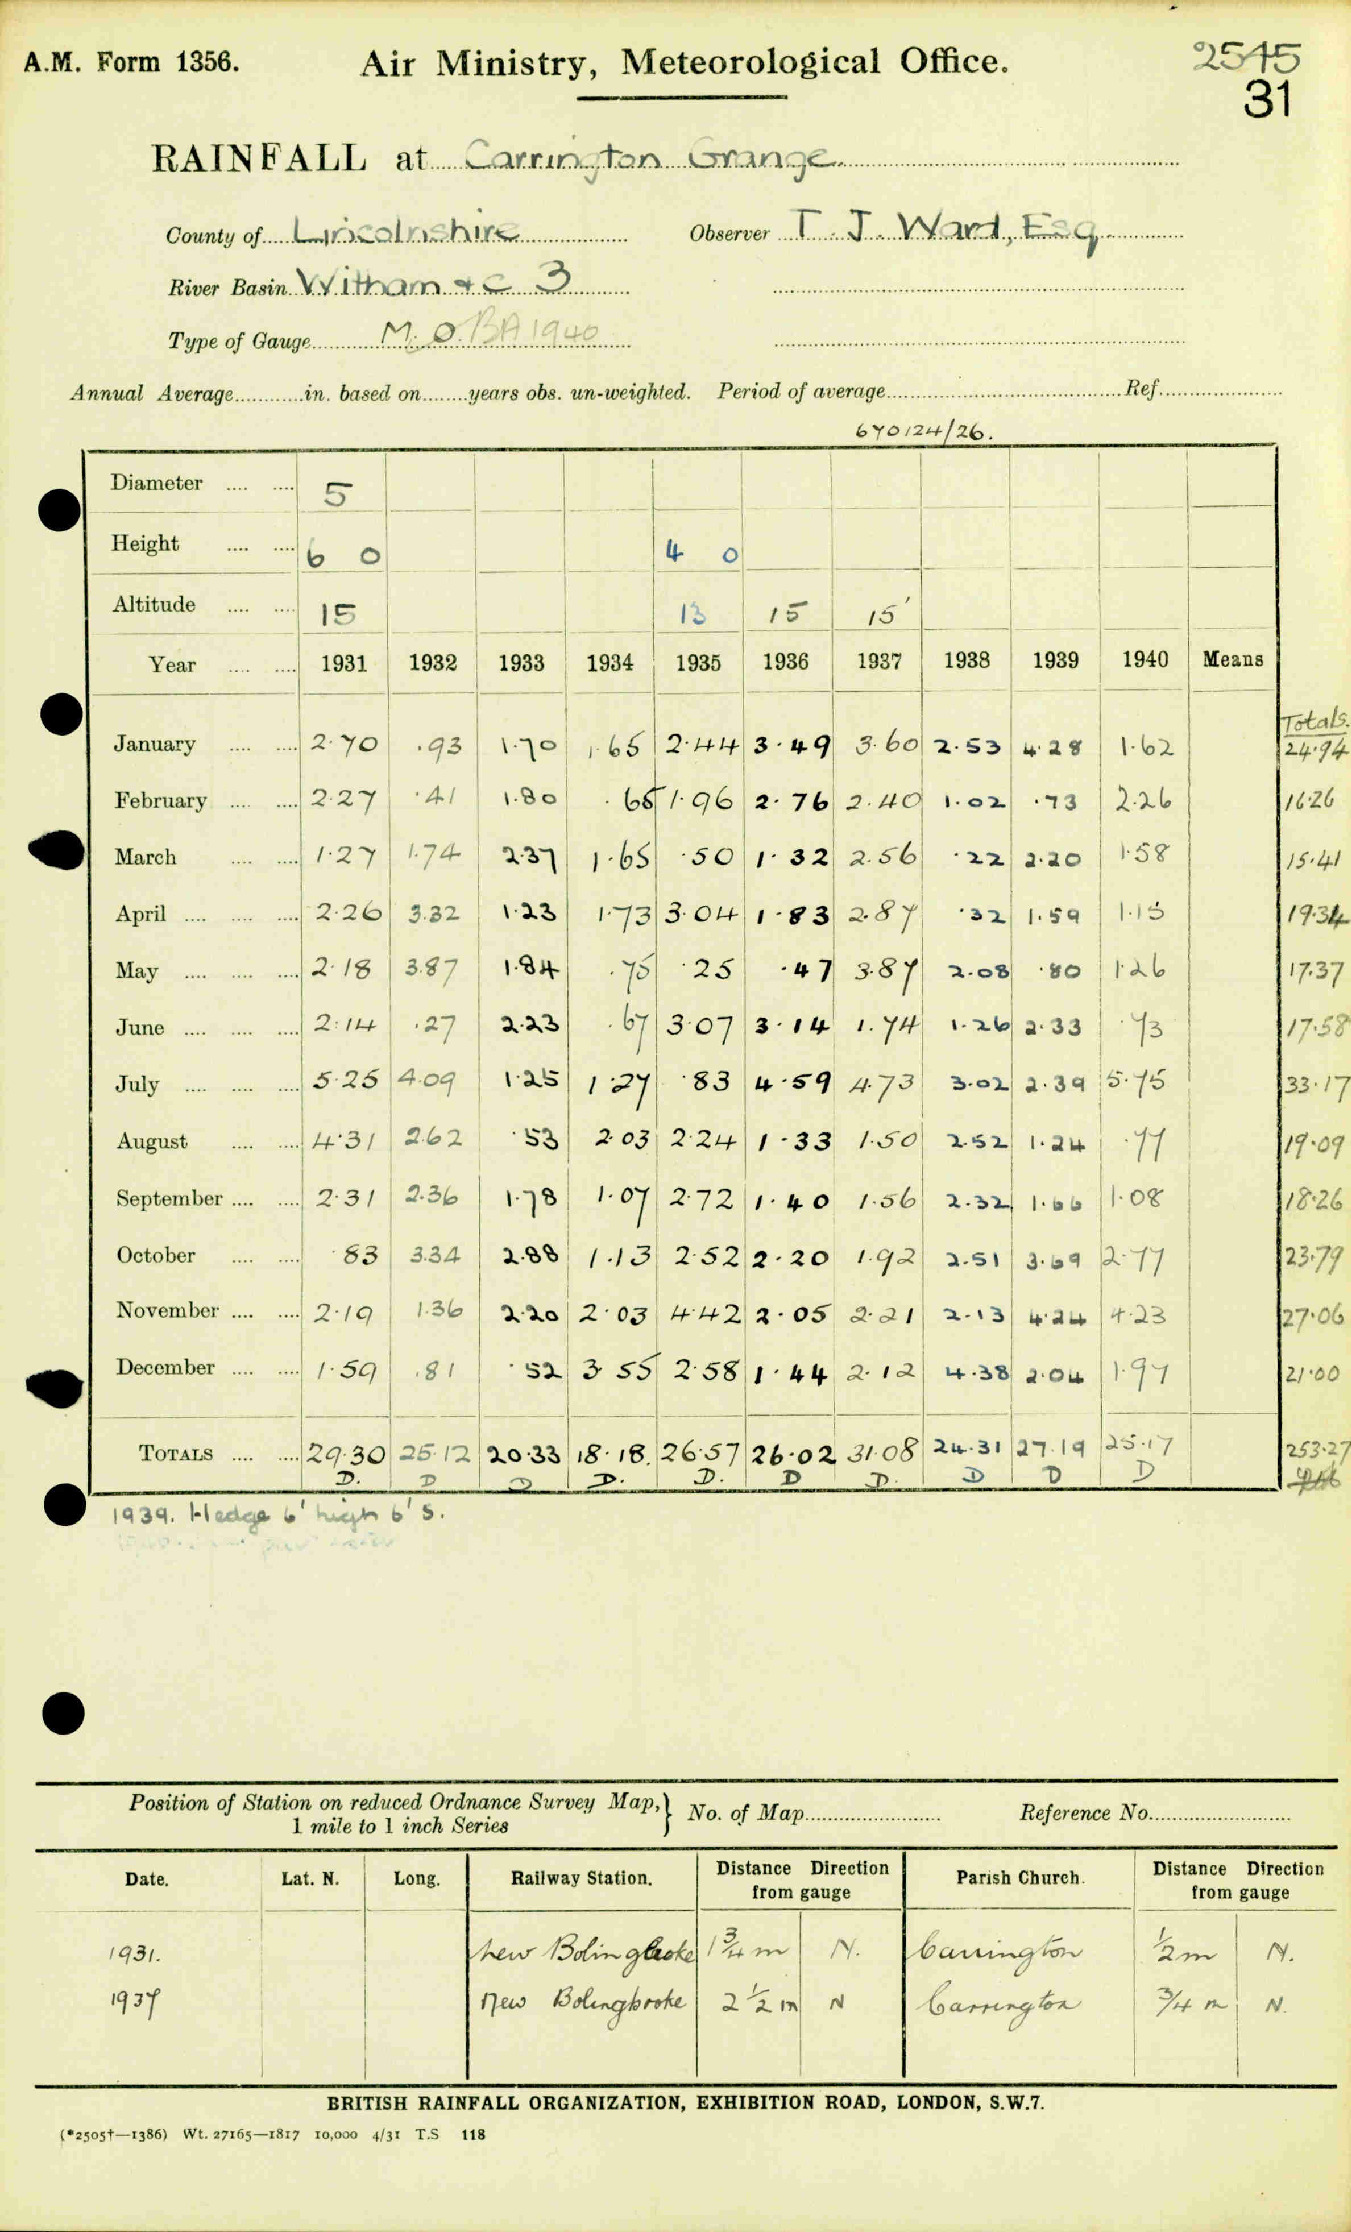 A.M. Form 1356.
Air Ministry, Meteorological Office.
2545
31
RAINFALL at Carrington Grange.
County of Lincolnshire Observer T. J. Ward, Esq.
River Basin Witham & c 3
Type of Gauge M.O. BA 1940
Annual Average in. based on years obs. un-weighted. Period of average Ref.
670124/26.
Diameter 5
Height 6 0 4 0
Altitude 15 13 15 15'
Year 1931 1932 1933 1934 1935 1936 1937 1938 1939 1940 Means
Totals.
January 2.70 .93 1.70 1.65 2.44 3.49 3.60 2.53 4.28 1.62 24.94
February 2.27 .41 1.80 .65 1.96 2.76 2.40 1.02 .73 2.26 16.26
March 1.27 1.74 2.37 1.65 .50 1.32 2.56 .22 2.20 1.58 15.41
April 2.26 3.32 1.23 1.73 3.04 1.83 2.87 .32 1.59 1.15 19.34
May 2.18 3.87 1.84 .75 .25 .47 3.87 2.08 .80 1.26 17.37
June 2.14 .27 2.23 .67 3.07 3.14 1.74 1.26 2.33 .73 17.58
July 5.25 4.09 1.25 1.27 .83 4.59 4.73 3.02 2.39 5.75 33.17
August 4.31 2.62 .53 2.03 2.24 1.33 1.50 2.52 1.24 .77 19.09
September 2.31 2.36 1.78 1.07 2.72 1.40 1.56 2.32 1.66 1.08 18.26
October 83 3.34 2.88 1.13 2.52 2.20 1.92 2.51 3.69 2.77 23.79
November 2.19 1.36 2.20 2.03 4.42 2.05 2.21 2.13 4.24 4.23 27.06
December 1.59 .81 .52 3.55 2.58 1.44 2.12 4.38 2.04 1.97 21.00
TOTALS 29.30 25.12 20.33 18.18. 26.57 26.02 31.08 24.31 27.19 25.17 253.27
D. D D D. D. D D. D D D
1939. Hedge 6' high 6' S.
Position of Station on reduced Ordnance Survey Map, 1 mile to 1 inch Series } No. of Map Reference No.
Date. Lat. N. Long. Railway Station. Distance Direction from gauge Parish Church. Distance Direction from gauge
1931. New Bolingbroke 1 3/4 m N. Carrington 1/2 m N.
1937 New Bolingbroke 2 1/2 m N Carrington 3/4 m N.
BRITISH RAINFALL ORGANIZATION, EXHIBITION ROAD, LONDON, S.W.7.
(*2505†—1386) Wt. 27165—1817 10,000 4/31 T.S 118